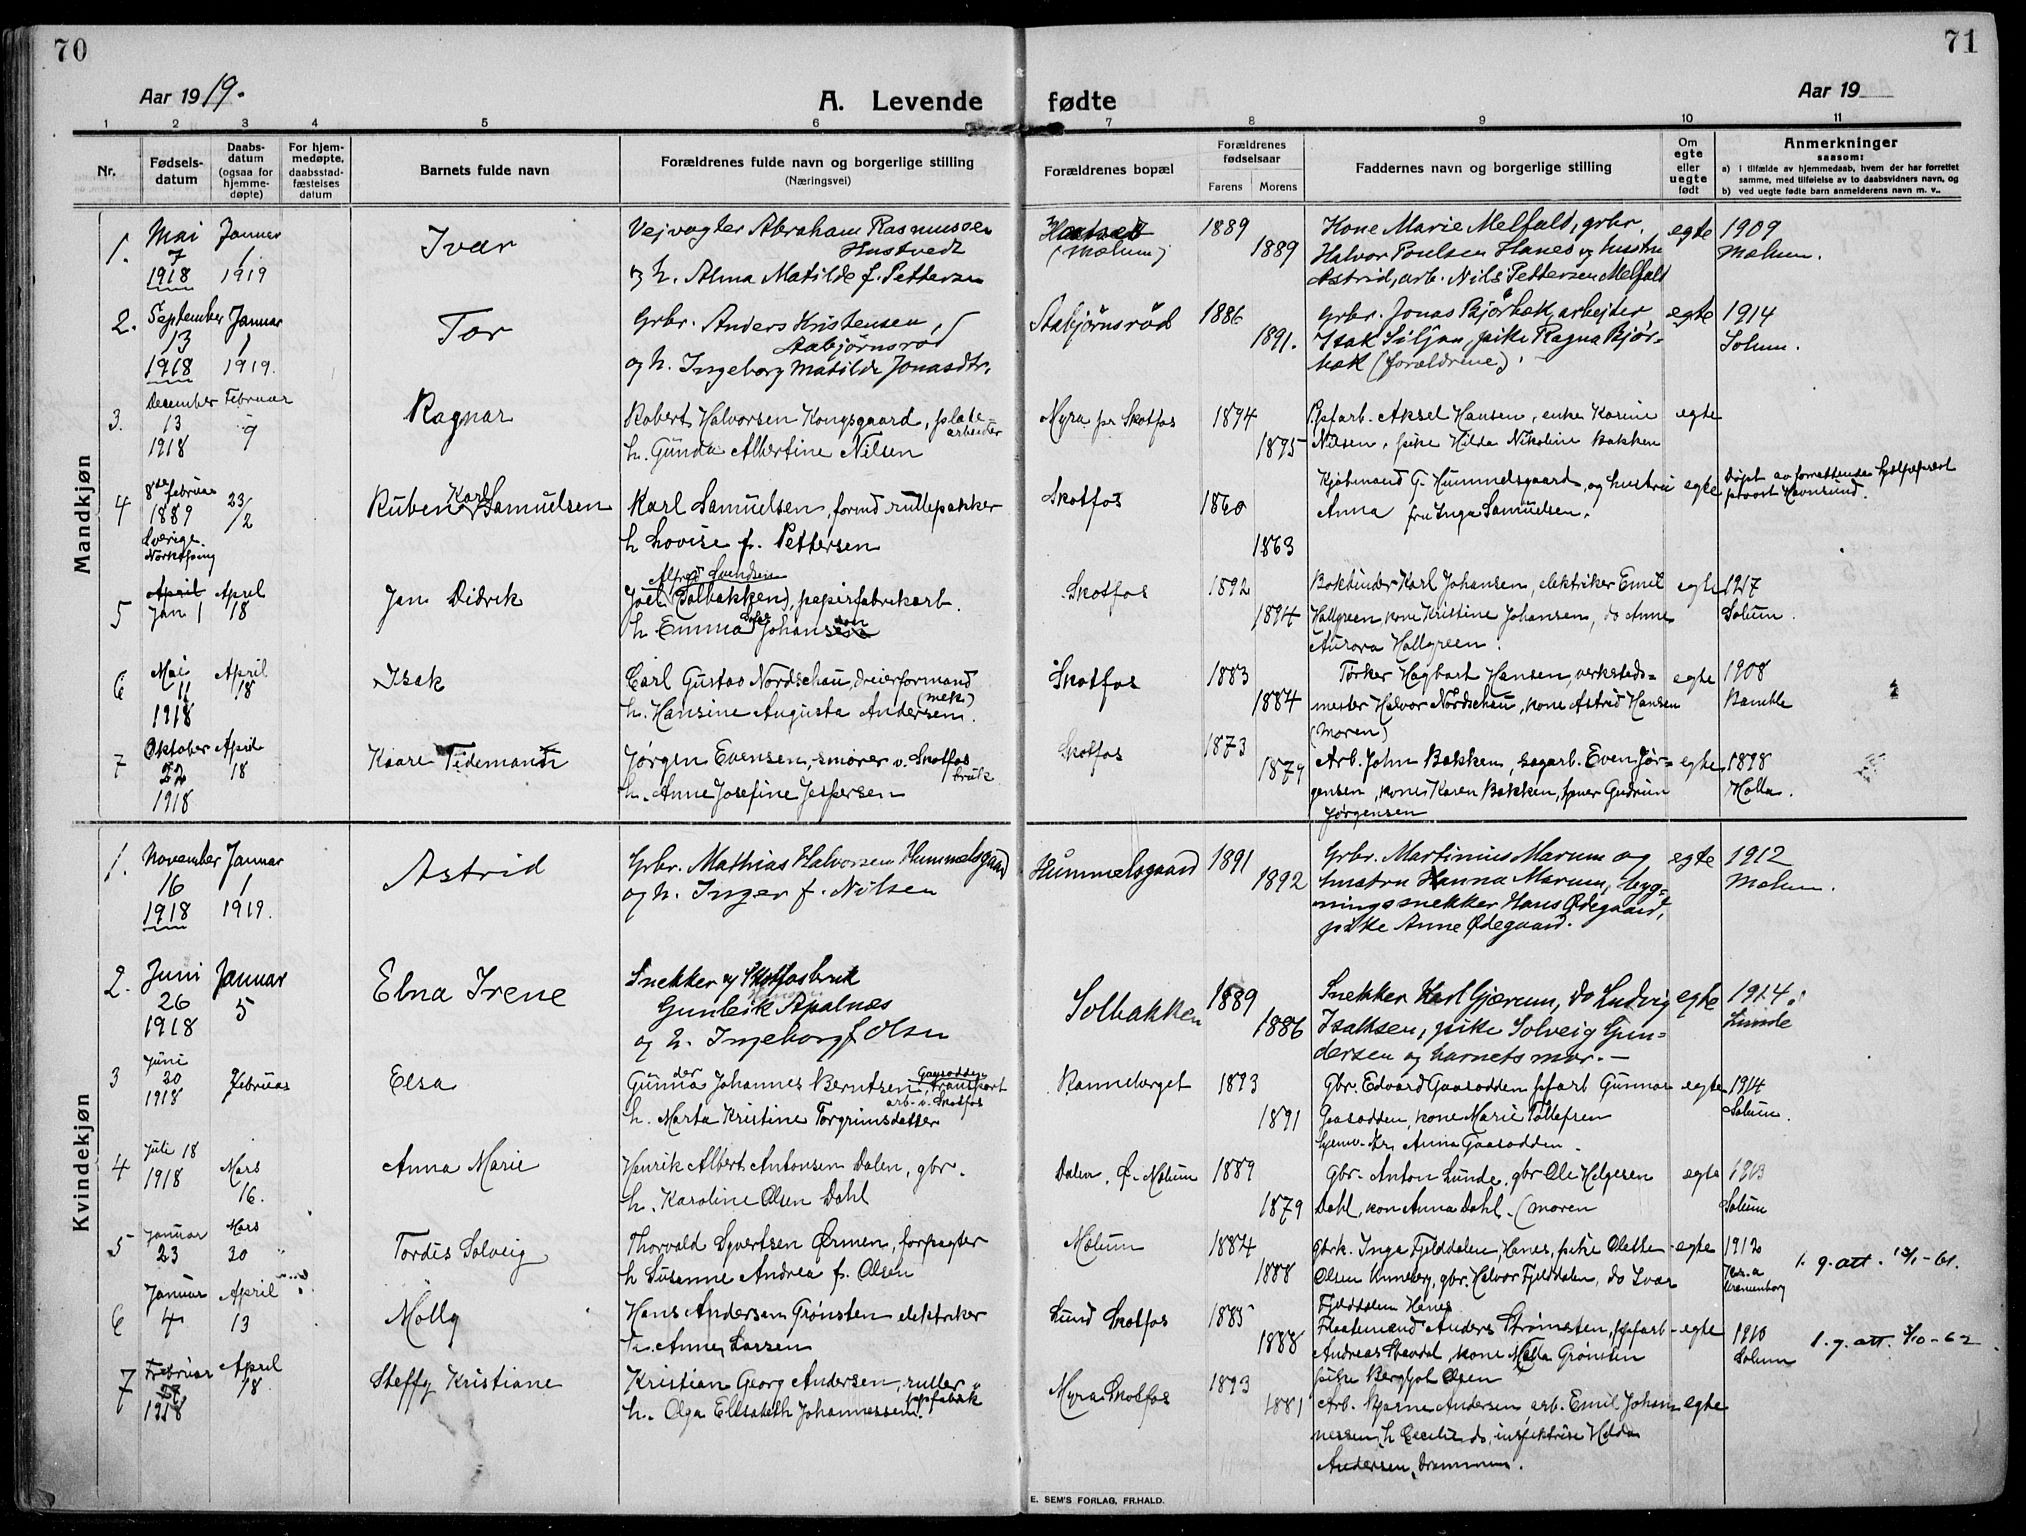 70
71
Aar 1919.
A. Levende fødte
Aar 19
1 2 3 4 5 6 7 8 9 10 11
Nr.
Fødsels-
datum
Daabs-
datum
(ogsaa for
hjemme-
døpte)
For hjem-
medøpte,
daabsstad-
fæstelses
datum
Barnets fulde navn
Forældrenes fulde navn og borgerlige stilling
(Næringsvei)
Forældrenes bopæl
Forældrenes
fødselsaar
Farens Morens
Faddernes navn og borgerlige stilling
Om
egte
eller
uegte
født
Anmerkninger
saasom:
a) i tilfælde av hjemmedaab, hvem der har forrettet
samme, med tilføielse av to daabsvidners navn, og
b) ved uegte fødte barn anmelderens navn m. v..
Mandkjøn
1. Mai 7 1918 Januar 1. 1919
Ivar
Veivogter Abraham Rasmussen
Hustvedt
og h. Alma Matilde f. Pettersen
(Mælum)
1889
1889
Kone Marie Melfald, grbr.
Halvor Poulsen Hanes og hustru
Astrid, arb. Nils Pettersen Melfald
egte
1909
Mælum.
2. September 13 1918 Januar 1 1919.
Tor
Grbr. Anders Kristensen
Aabjørnsrød
og h. Ingeborg Matilde Jonasdtr.
Aabjørnsrød
1886
1891.
Grbr. Jonas Bjørbæk, arbeider
Isak Siljan, pike Ragna Bjør-
bæk (forældrene)
egte
1914
Solum.
3. December 13 1918 Februar 9
Ragnar
Robert Halvorsen Kongsgaard, plate-
arbeider
h. Gunda Albertine Nilsen
Myra pr Skotfos
1894
1895
Ppfarb. Aksel Hansen, enke Karine
Nilsen, pike Hilda Nikoline Bakken
egte
4 8de februar 1889 Sverige Norkøping 23/2
Ruben Karl Samuelsen
Karl Samuelsen, formd rullepakker
h Lovise f. Pettersen
Skotfos
1860
1863
Kjøbmand G. Hummelsgaard, og hustru
Anna fru Inga Samuelsen.
egte
Døpt av forrettende hjelpeprest
provst Havnsund.
5 April Jan 1 April 18
Jan Didrik
Alfred Svendsen
Joel (Solbakken), papirfabrikarb.
h Emma Johansson
Skotfos
1892
1894
Bokbinder Karl Johansen, elektriker Emil
Hallgreen, kone Kristine Johansen, do Anne
Aurora Hallgreen.
egte
1917
Solum.
6 Mai 11 1918 April 18
Isak
Carl Gustav Nordschau, dreierformand
(mek)
h. Hansine Augusta Andersen.
Skotfos
1883
1884
Tørker Hagbart Hansen, verksteds-
mester Halvor Nordschau, kone Astrid Hansen
(moren)
egte
1908
Bamble
7 Oktober 22 1918 April 18
Kaare Tidemann
Jørgen Evensen, smører v. Skotfos
bruk
h. Anne Josefine Jespersen
Skotfos
1873
1879
Arb. John Bakken, sagarb. Even Jør-
gensen, kone Karen Bakken, frøken Gudrun
Jørgensen
egte
1898
Holla.
Kvindekjøn
1. November 16 1918 Januar 1 1919.
Astrid
Grbr. Mathias Halvorsen Hummelsgaard
og h. Inger f. Nilsen
Hummelsgaard
1891
1892
Grbr. Martinius Marum og
hustru Hanna Marum, byg-
ningssnekker Hans Ødegaard,
pike Anne Ødegaard.
egte
1912
Mælum.
2. Juni 26 1918 Januar 5
Ebna Irene
Snekker v Skotfosbruk
Gunleik Apalnæs
og h. Ingeborg f. Olsen
Solbakken
1889
1886
Snekker Karl Gjærum, do Ludvig
Isaksen, pike Solveig Gun-
dersen og barnets mor.—
egte
1914.
Lunde
3 Juni 20 1918 Februar 2
Elsa
Gunnar Johannes Berntsen Gaasodden, transport
arb. v. Skotfos
h. Marta Kristine Torgrimsdatter
Ranneberget
1893
1891
Gbr. Edvard Gaasodden ppfarb Gunnar
Gaasodden, kone Marie Tollefsen
hjemv. Fr. Anna Gaasodden.
egte
1914
Solum.
4 Juli 18 1918 Mars 16.
Anna Marie
Henrik Albert Antonsen Dalen, gbr.
h. Karoline Olsen Dahl
Dalen, Ø. Mælum
1889
1879
Gbr. Anton Lunde, gbr Ole Helgesen
Dahl, kone Anna Dahl. (moren
egte
1913
Solum
5 Januar 23 Mars 30
Tordis Solveig
Thorvald Syvertsen Ørmen, forpagter
h Susanne Andrea f. Olsen
Mælum
1884
1888
Gbrk. Inga Fjelddalen, Hanes, pike Olette
Olsen Kuneberg, gbr. Halvor Fjelddalen, do Ivar
Fjelddalen Hanes
egte
1912
1. g. att. - 61.
6 Januar 4 April 13
Molly
Hans Andersen Grønsten elektriker
h. Anne Larsen
Lund Skotfos
1885
1888
Flaatemand Anders Strømsten, ppfarb
Andreas Stavdal, kone Molla Grønsten
pike Bergljot Olsen
egte
1910
Solum
1. g. att. 3/10-62
7 Februar 27 1918 April 18
Steffy Kristiane
Kristian Georg Andersen, ruller
papfabrik
h. Olga Elisabeth Johannessen.
Myra Skotfos
1893
1881
Arb. Bjarne Andersen, arb. Emil Johan-
nessen, h Cecilie do, inspektrise Hilda
Andersen, Drammen.
egte
E. SEM'S FORLAG, FR.HALD.